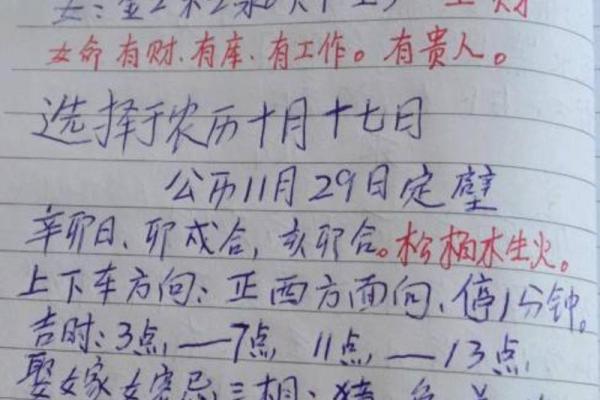 女命有财、有库、有工作。有贵人。
选择于农历十月十七日
公历11月29日定壁
辛卯日、卯戌合,亥卯合。松柏木生火。
上下车方向:正西方面向、停1分钟。
吉时:3点—7点 11点—13点
娶嫁女客忌三相:猪 兔 羊